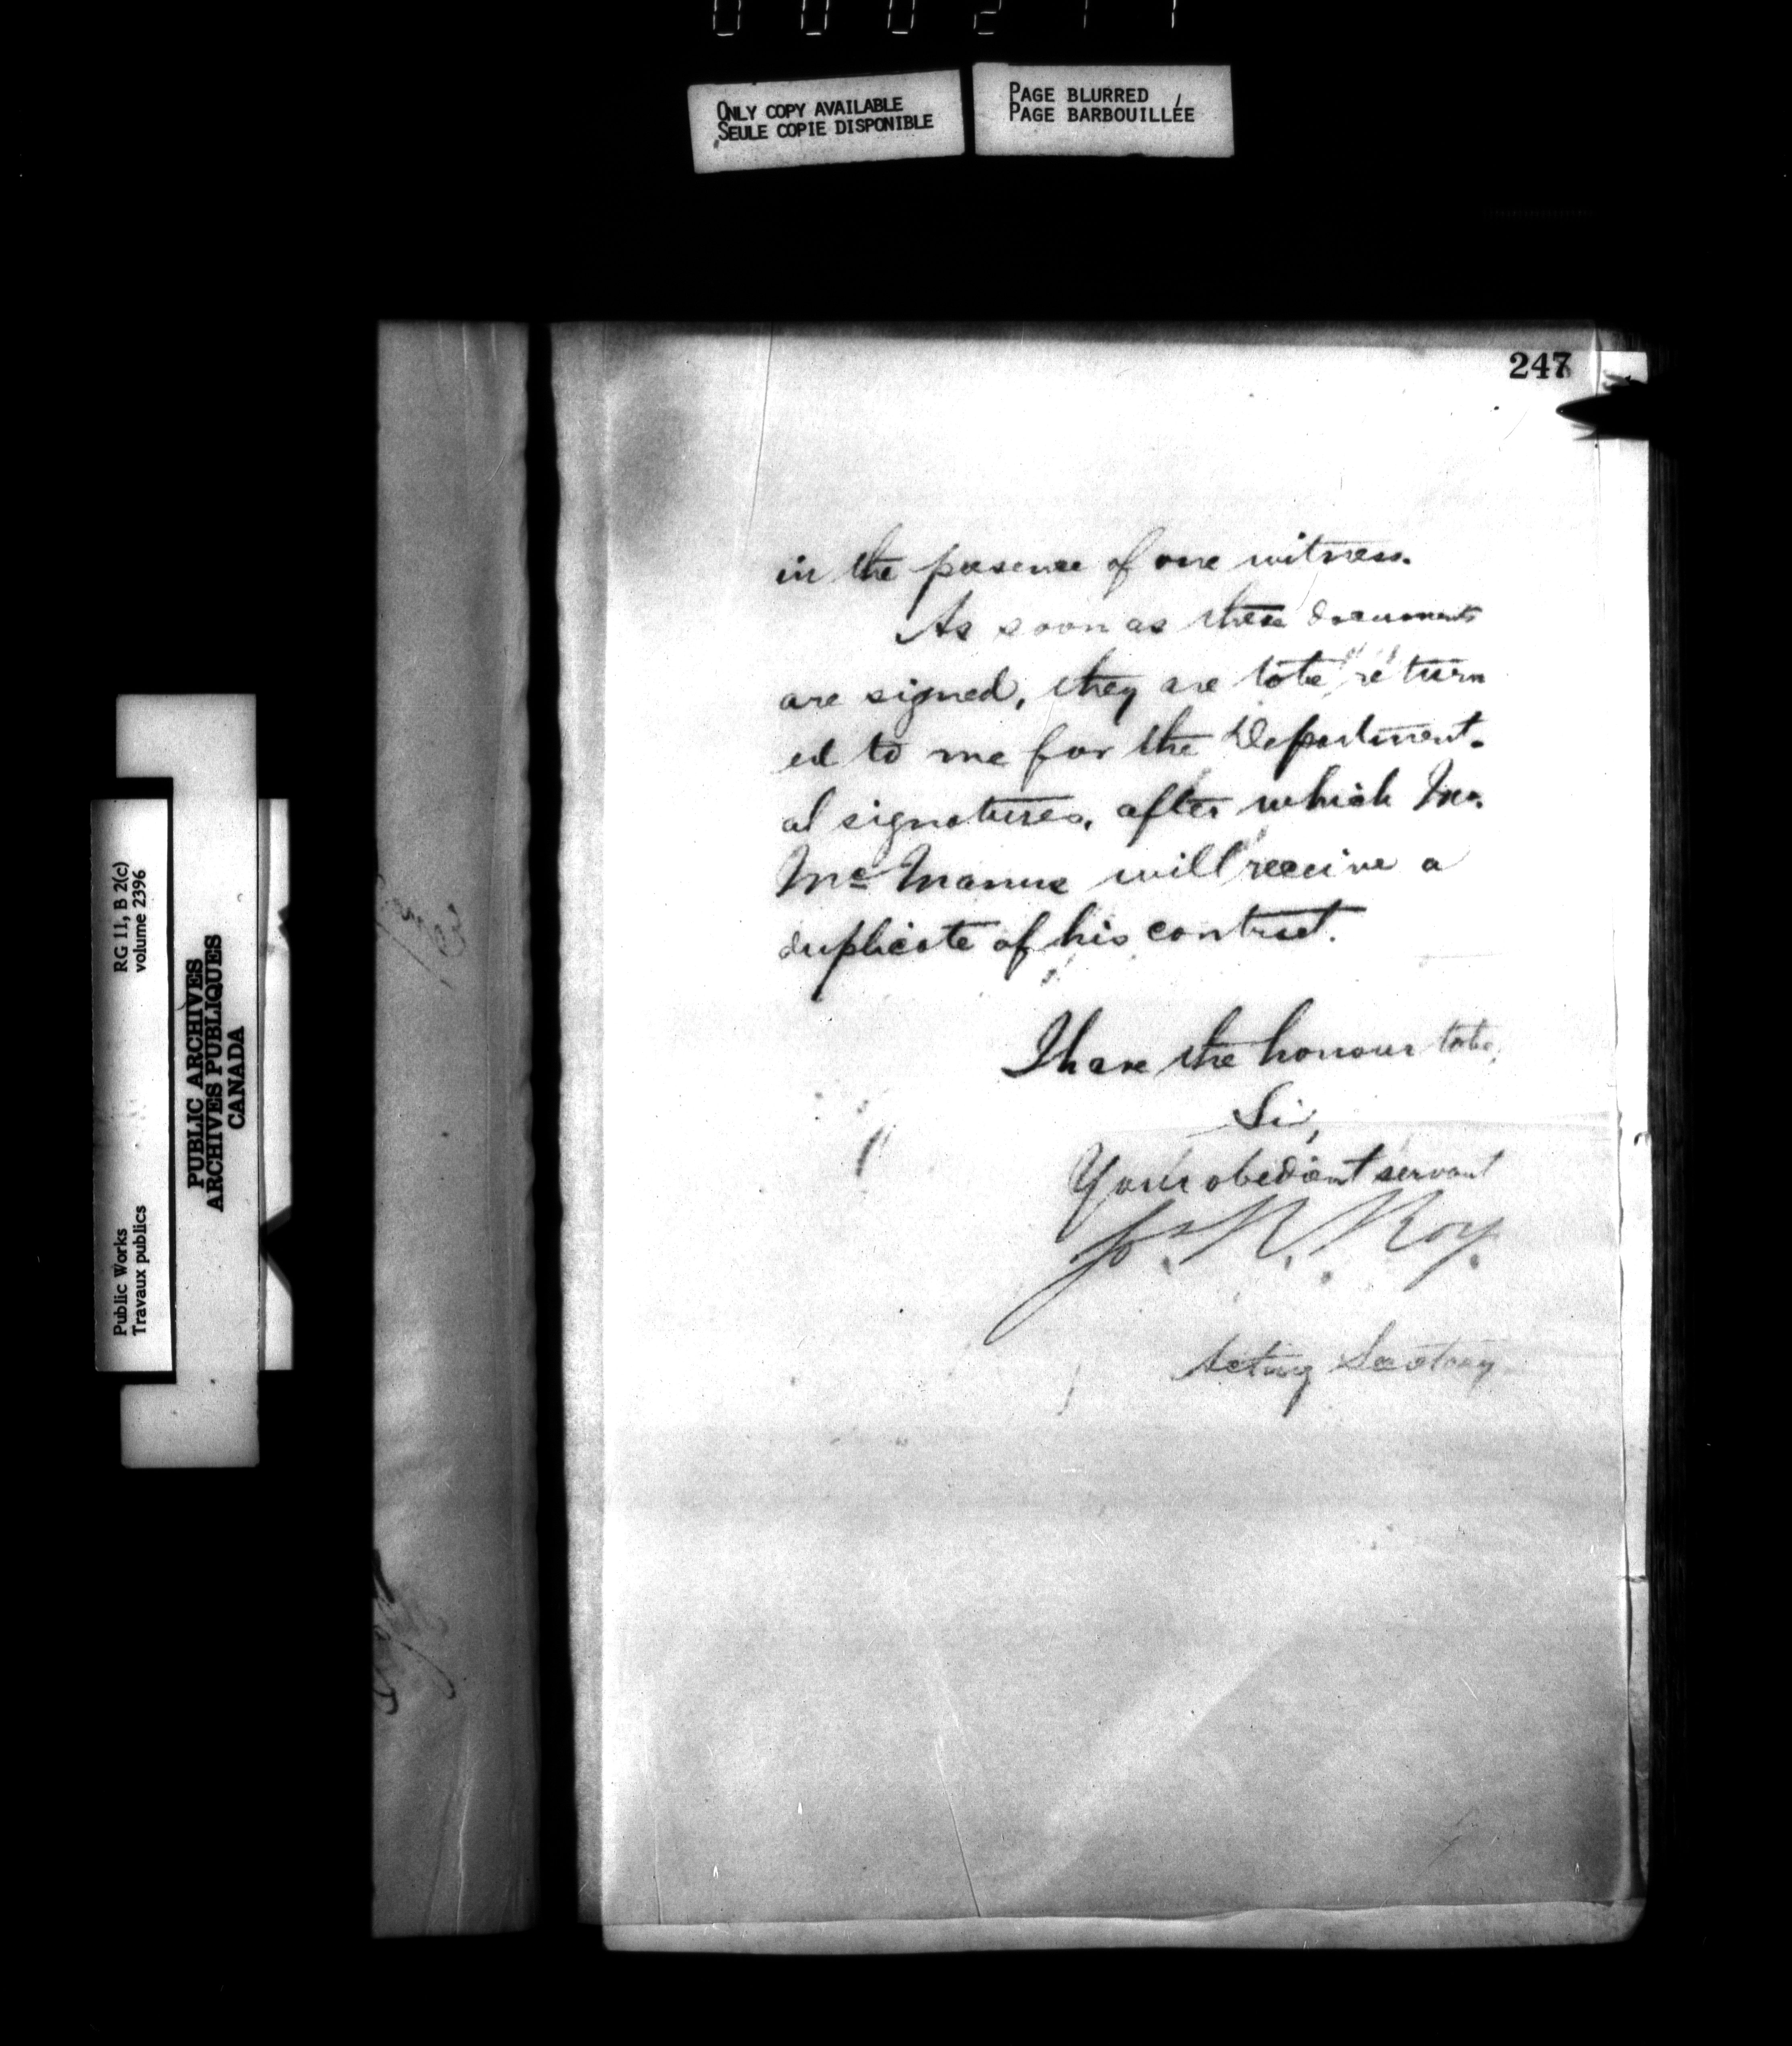 ONLY COPY AVAILABLE
SEULE COPIE DISPONIBLE
PAGE BLURRED
PAGE BARBOUILLÉE
247
in the presence of one witness.
As soon as these documents
are signed, they are to be return
ed to me for the Department-
al signatures, after which Mr.
Mc Manus will receive a
duplicate of his contract.
I have the honour to be,
Sir,
Your obedient servant
R. Roy.
Acting Secretary
RG 11, B 2(c)
volume 2396
Public Works
Travaux publics
PUBLIC ARCHIVES
ARCHIVES PUBLIQUES
CANADA